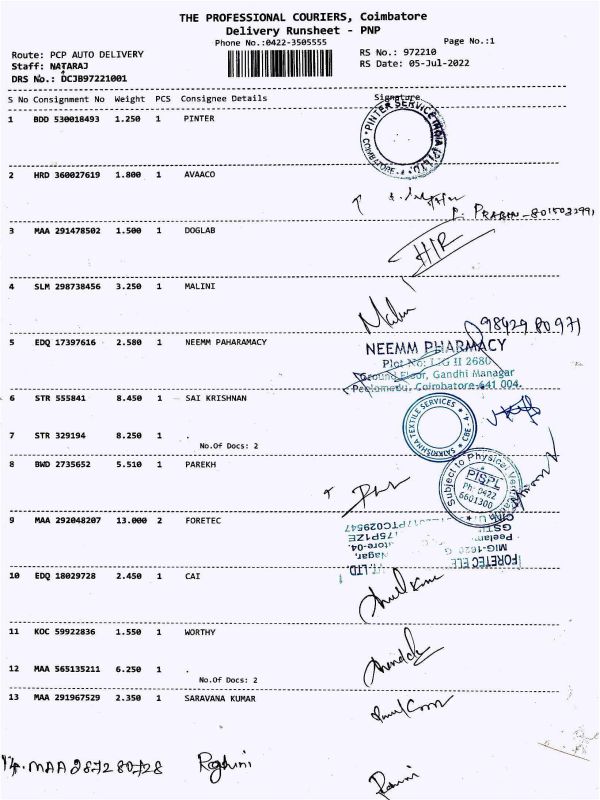 THE PROFESSIONAL COURIERS, Coimbatore
Delivery Runsheet - PNP
Phone No.:0422-3505555
Page No.:1
Route: PCP AUTO DELIVERY
RS No.: 972210
Staff: NATARAJ
RS Date: 05-Jul-2022
DRS No.: DCJB97221001
S No Consignment No Weight PCS Consignee Details Signature
1 BDD 530018493 1.250 1 PINTER
PINTER SERVICE INDIA (P) LTD. COIMBATORE - 4.
2 HRD 360027619 1.800 1 AVAACO
P. PRABIN-
3 MAA 291478502 1.500 1 DOGLAB
HIR
4 SLM 298738456 3.250 1 MALINI
Malini
98429 80971
5 EDQ 17397616 2.580 1 NEEMM PAHARAMACY
NEEMM PHARMACY
Plot No: LIG II 2680
Ground Floor, Gandhi Managar
Peelamedu, Coimbatore-641 004.
6 STR 555841 8.450 1 SAI KRISHNAN
SAIKRISHNA TEXTILE SERVICES * CBE - 4. *
7 STR 329194 8.250 1 .
No.Of Docs: 2
8 BWD 2735652 5.510 1 PAREKH
Subject to Physical
PISPL
Ph: 0422
6601300
9 MAA 292048207 13.000 2 FORETEC
FORETEC ELE T. LTD.
MIG-1620 Nagar,
Peelam atore-04.
GSTI 75P1ZE
CIN: U 2017PTC029547
10 EDQ 18029728 2.450 1 CAI
11 KOC 59922836 1.550 1 WORTHY
12 MAA 565135211 6.250 1 .
No.Of Docs: 2
13 MAA 291967529 2.350 1 SARAVANA KUMAR
14. MAA 287280728 Roghini